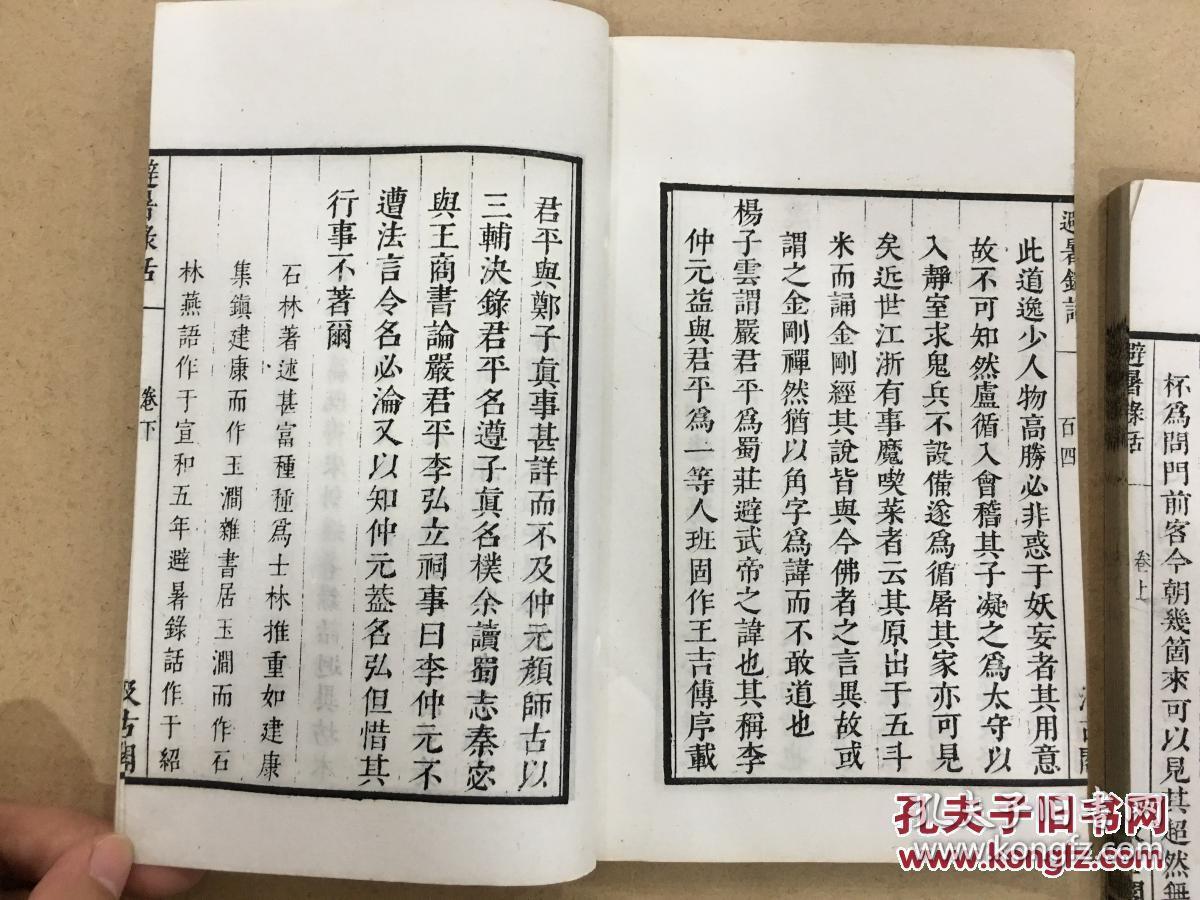 避暑錄話
百四
此道逸少人物高勝必非惑于妖妄者其用意
故不可知然盧循入會稽其子凝之為太守以
入靜室求鬼兵不設備遂為循屠其家亦可見
矣近世江浙有事魔喫菜者云其原出于五斗
米而誦金剛經其說皆與今佛者之言異故或
謂之金剛禪然猶以角字為諱而不敢道也
楊子雲謂嚴君平為蜀莊避武帝之諱也其稱李
仲元益與君平為一等人班固作王吉傳序載
君平與鄭子真事甚詳而不及仲元顏師古以
三輔決錄君平名遵子真名樸余讀蜀志秦宓
與王商書論嚴君平李弘立祠事曰李仲元不
遭法言令名必淪又以知仲元葢名弘但惜其
行事不著爾
石林著述甚富種種為士林推重如建康
集鎮建康而作玉澗雜書居玉澗而作石
林燕語作于宣和五年避暑錄話作于紹
避暑錄話
卷下
汲古閣
避暑錄話
卷上
杯為問門前客今朝幾箇來可以見其超然無
孔夫子旧书网
www.kongfz.com